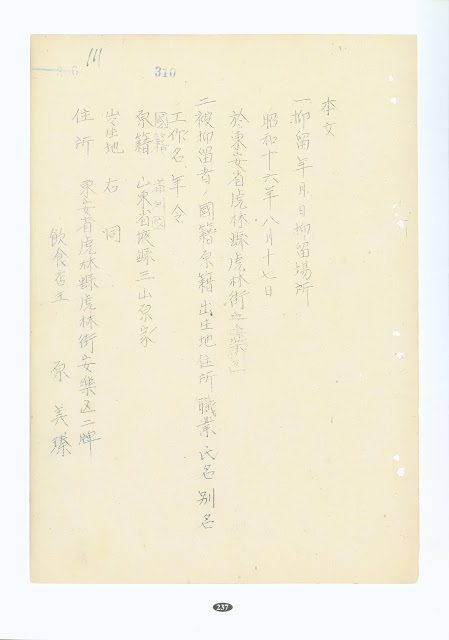 111
310
本文
一抑留年月日抑留場所
昭和十六年八月十七日
於東安省虎林縣虎林街
二被抑留者ノ國籍原籍出生地住所職業氏名別名
工作名年令
國籍 満洲國
原籍 山東省掖縣三山原家
出生地 右同
住所 東安省虎林縣虎林街安樂区二牌
飲食店主 原美臻
237